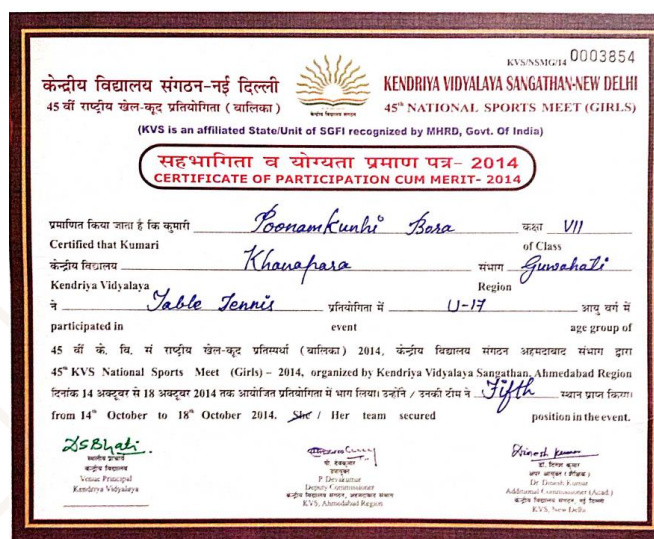 KVS/NSMG/14 0003854
केन्द्रीय विद्यालय संगठन-नई दिल्ली
KENDRIYA VIDYALAYA SANGATHAN-NEW DELHI
45 वीं राष्ट्रीय खेल-कूद प्रतियोगिता (बालिका)
केन्द्रीय विद्यालय संगठन
45th NATIONAL SPORTS MEET (GIRLS)
(KVS is an affiliated State/Unit of SGFI recognized by MHRD, Govt. Of India)
सहभागिता व योग्यता प्रमाण पत्र- 2014
CERTIFICATE OF PARTICIPATION CUM MERIT- 2014
प्रमाणित किया जाता है कि कुमारी Poonamkunhi Bora कक्षा VII
Certified that Kumari of Class
केन्द्रीय विद्यालय Khanapara संभाग Guwahati
Kendriya Vidyalaya Region
ने Table Tennis प्रतियोगिता में U-17 आयु वर्ग में
participated in event age group of
45 वीं के. वि. सं राष्ट्रीय खेल-कूद प्रतिस्पर्धा (बालिका) 2014, केन्द्रीय विद्यालय संगठन अहमदाबाद संभाग द्वारा
45th KVS National Sports Meet (Girls) – 2014, organized by Kendriya Vidyalaya Sangathan, Ahmedabad Region
दिनांक 14 अक्टूबर से 18 अक्टूबर 2014 तक आयोजित प्रतियोगिता में भाग लिया। उन्होंने / उनकी टीम ने Fifth स्थान प्राप्त किया।
from 14th October to 18th October 2014. She / Her team secured position in the event.
DSBhati
स्थानीय प्राचार्य
केन्द्रीय विद्यालय
Venue Principal
Kendriya Vidyalaya
पी. देवकुमार
उपायुक्त
P. Devakumar
Deputy Commissioner
केन्द्रीय विद्यालय संगठन, अहमदाबाद संभाग
KVS, Ahmedabad Region
Dinesh Kumar
डॉ. दिनेश कुमार
अपर आयुक्त (शैक्षिक)
Dr. Dinesh Kumar
Additional Commissioner (Acad.)
केन्द्रीय विद्यालय संगठन, नई दिल्ली
KVS, New Delhi